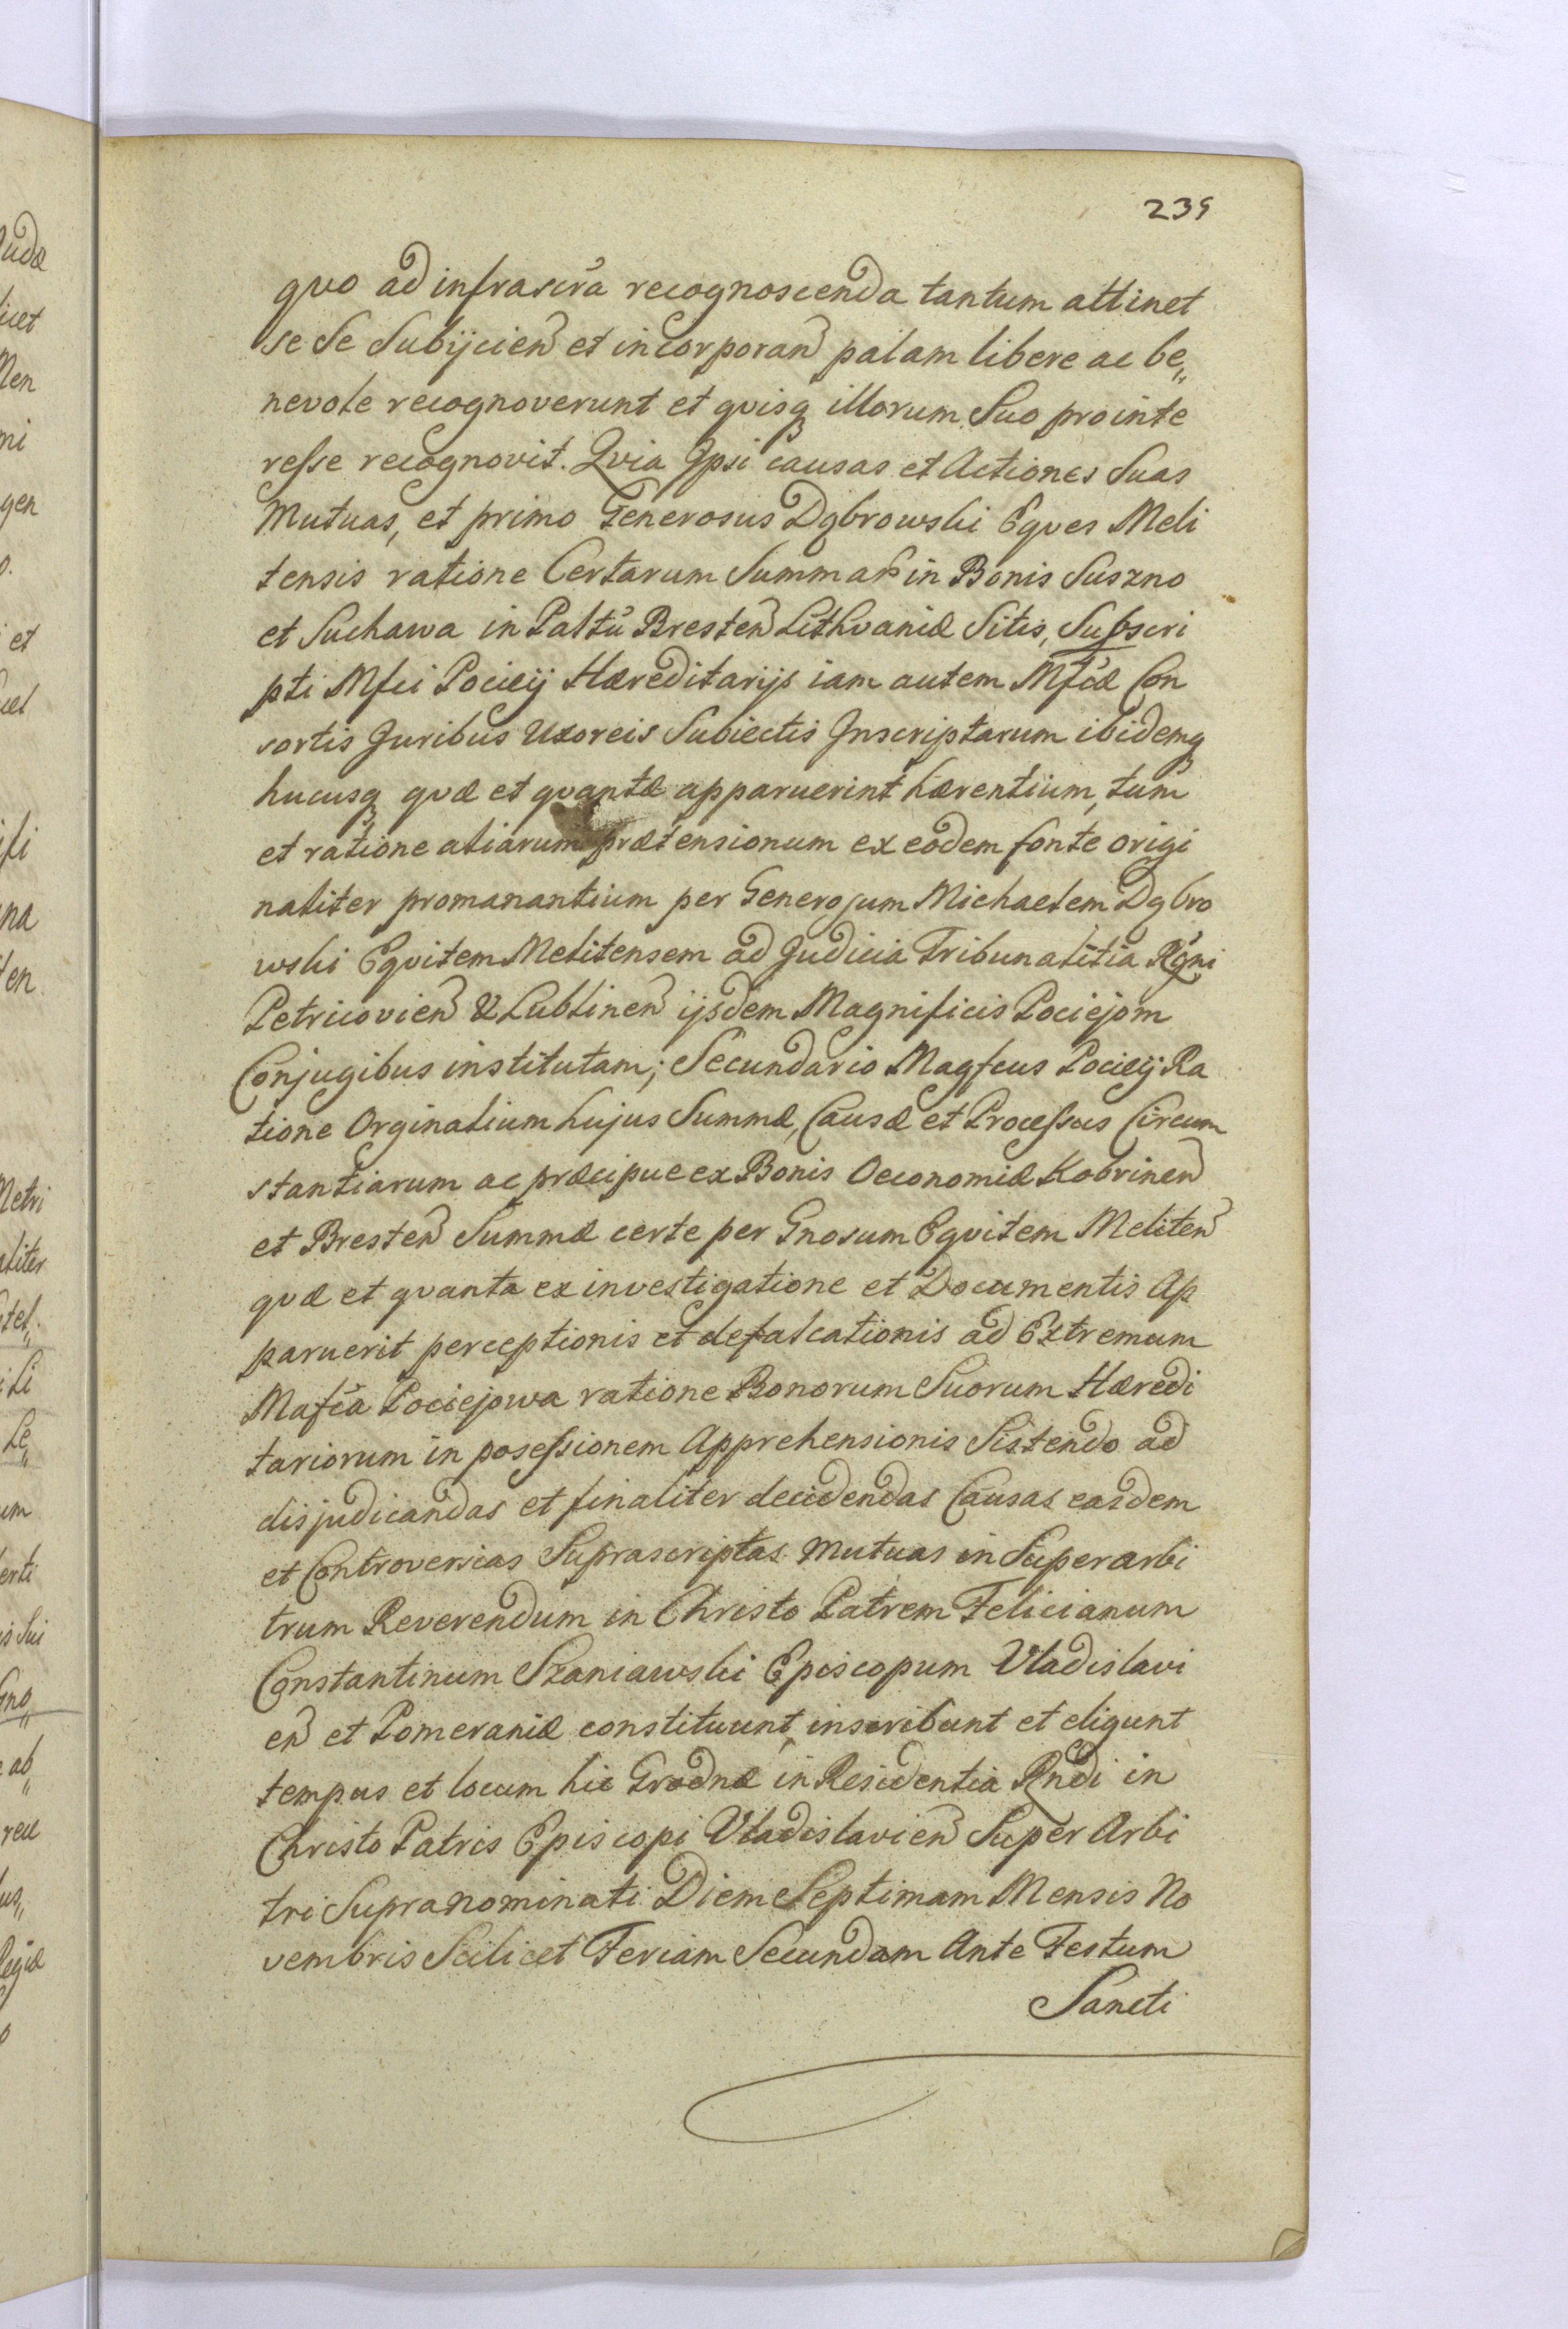 239
quo ad infrascra recognoscenda tantum attinet
se se Subijcien et incorporan palam libere ac be„
nevole recognoverunt et quisq illorum Suo prointe
resse recognovit. Qvia Jpsi causas et Actiones Suas
Mutuas, et primo Generosus Dąbrowski Eqves Meli
tensis ratione Certarum Summar in Bonis Suszno
et Suchawa in Paltu Bresten Lithvaniæ Sitis, Subscri
pti Mfci Pocieij Hæreditarijs iam autem Mfcæ Con
sortis Juribus Uxoreis Subiectis Jnscriptarum ibidemq
hucusq qvæ et qvantæ apparuerint hærentium, tum
et ratione aliarum prætensionum ex eodem fonte origi
naliter promanantium per Generosum Michaelem Dąbro
wski Eqvitem Melitensem ad Judicia Tribunalitia Rgni
Petricovien & Lublinen ijsdem Magnificis Pociejom
Conjugibus institutam; Secundario Magfcus Pocieij Ra
tione Orginalium hujus Summæ, Causæ et Processus Circum
stantiarum ac præcipue ex Bonis Oeconomiæ Kobrinen
et Bresten Summæ certe per Gnosum Eqvitem Meliten
qvæ et qvanta ex investigatione et Documentis Ap
paruerit perceptionis et defalcationis ad Extremum
Mafca Pociejowa ratione Bonorum Suorum Hæredi
tariorum in posessionem Apprehensionis Sistendo ad
disjudicandas et finaliter decidendas Causas easdem
et Controversias Suprascriptas mutuas in Superarbi
trum Reverendum in Christo Patrem Felicianum
Constantinum Szaniawski Episcopum Vladislavi
en et Pomeraniæ constituunt, inscribunt et eligunt
tempus et locum hic Grodnæ in Residentia Rndi in
Christo Patris Episcopi Vladislavien Super Arbi
tri Supranominati Diem Septimam Mensis No
vembris Scilicet Feriam Secundam Ante Festum
Sancti